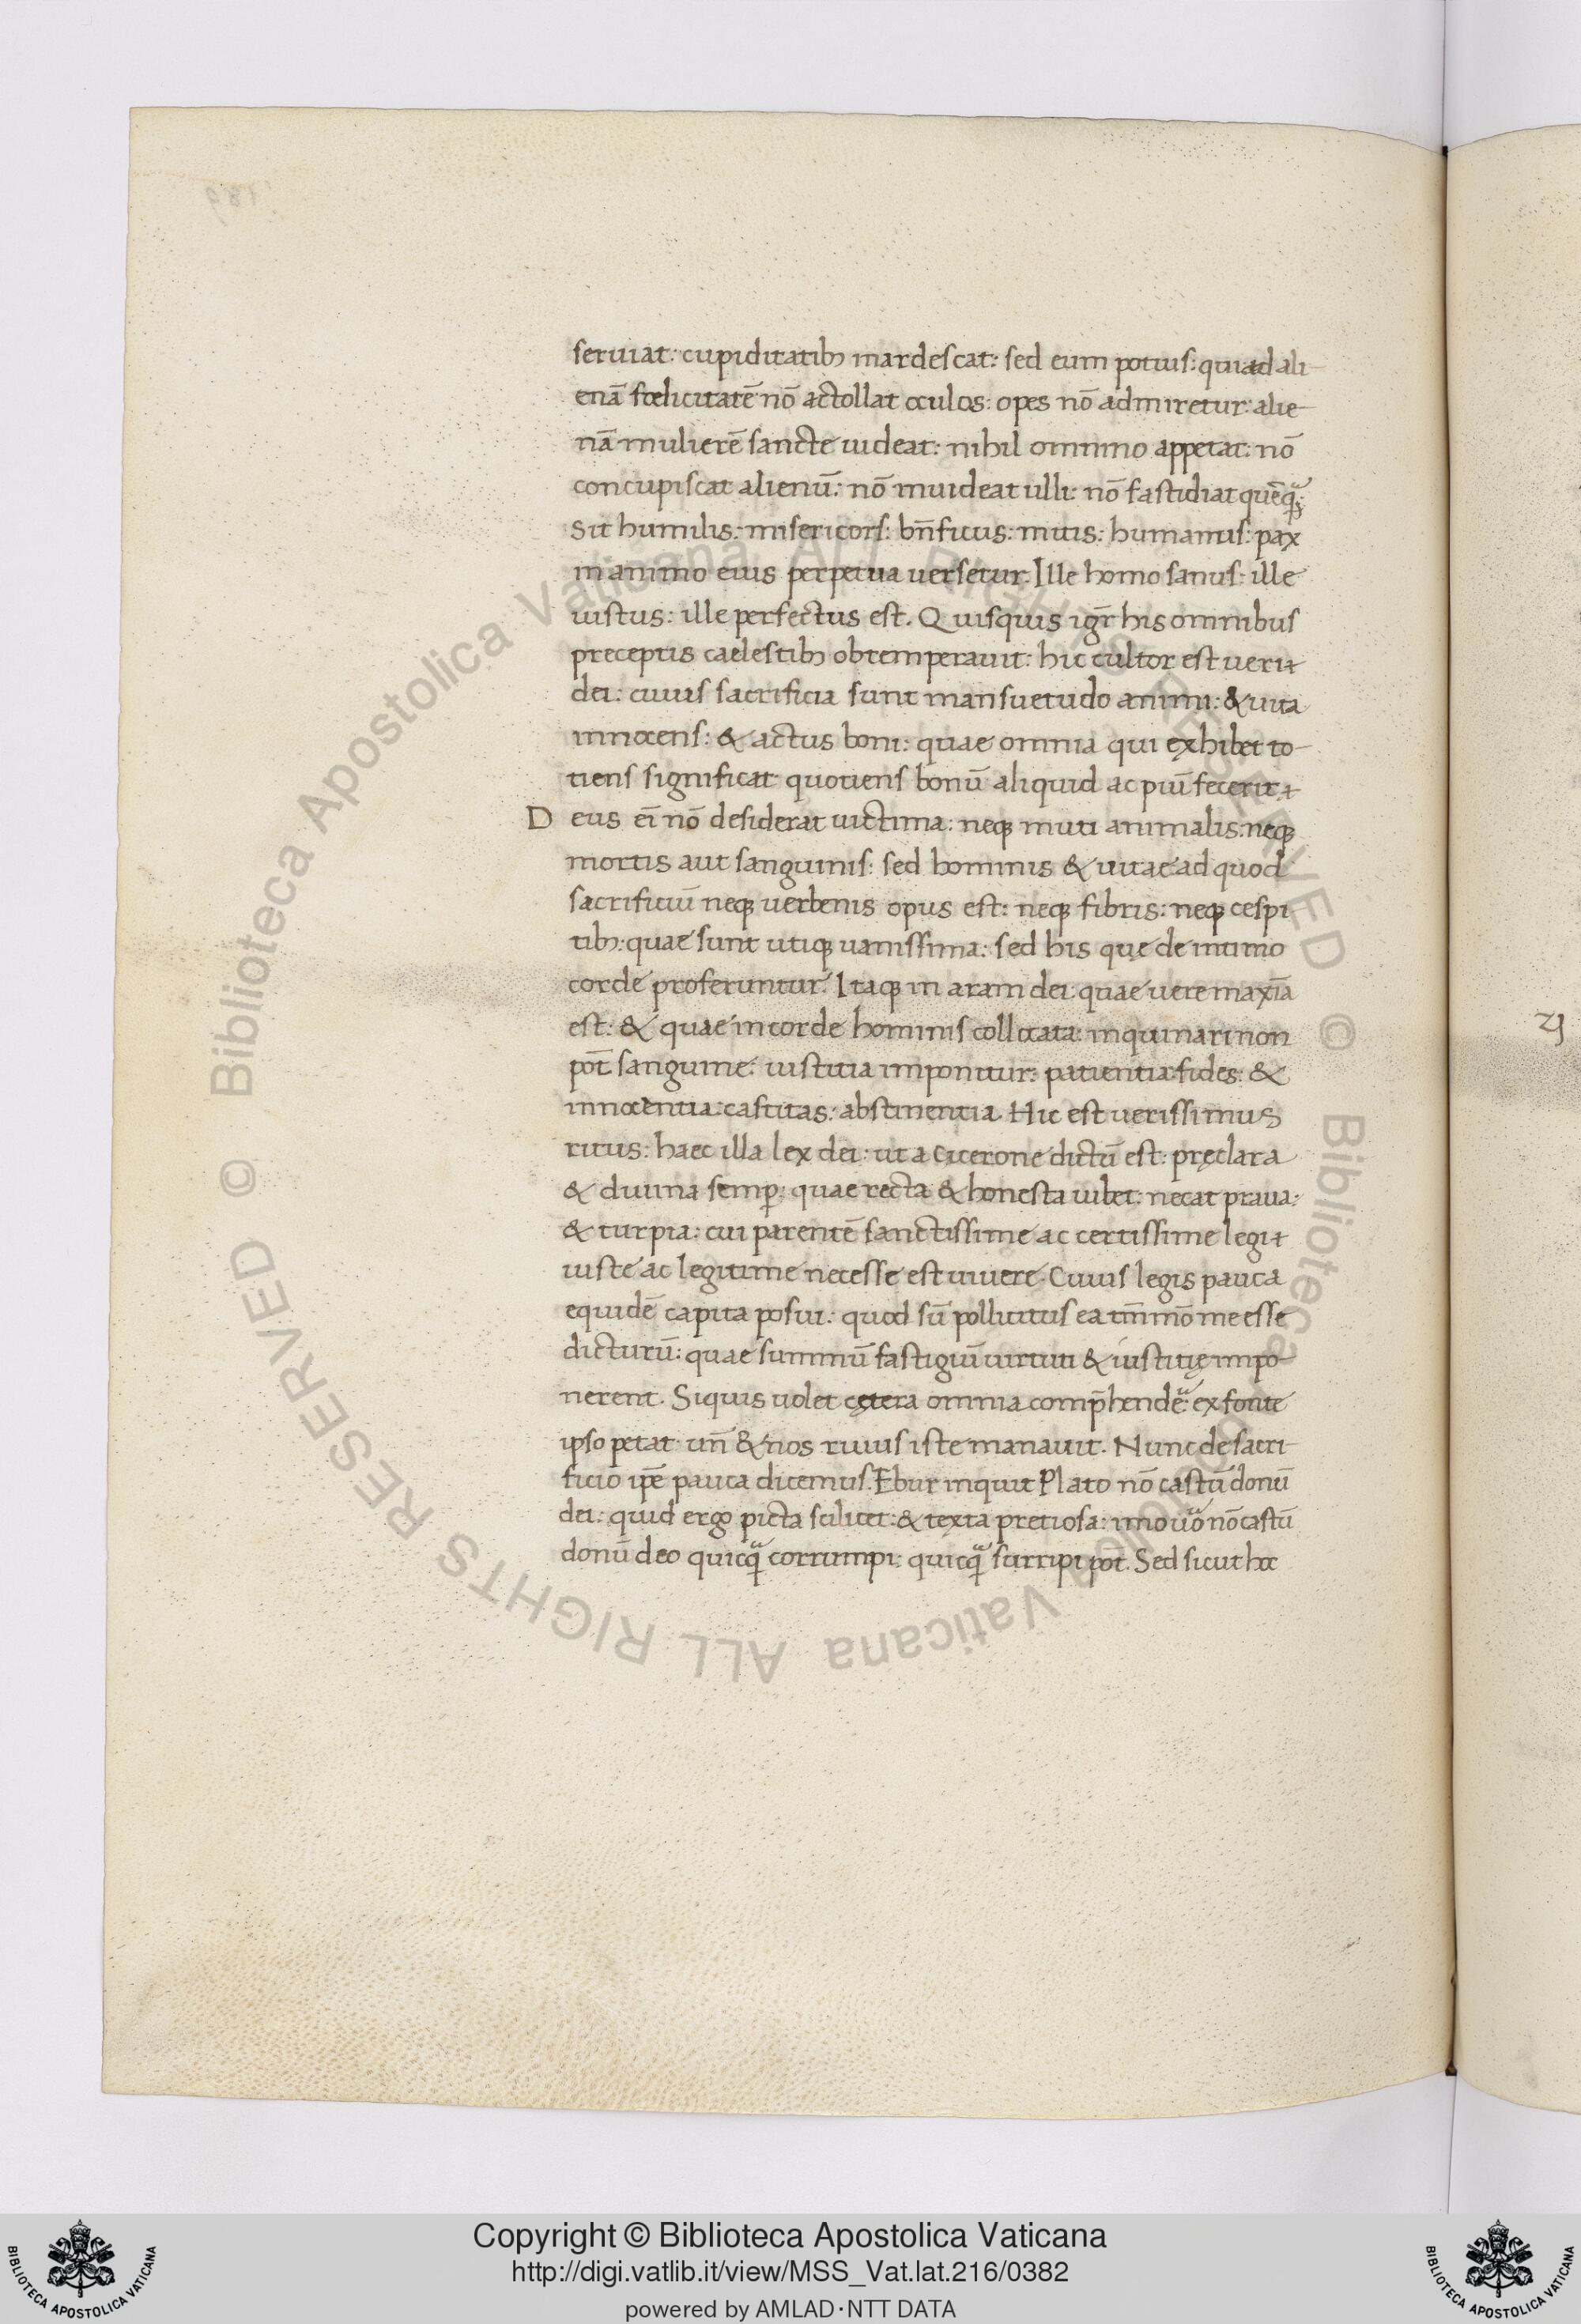 seruiat: cupiditatibꝫ inardescat: sed eum potius: qui ad ali-
enā fœlicitatē nō actollat oculos: opes nō admiretur: alie-
nā mulierē sancte uideat: nihil omnino appetat: nō
concupiscat alienū: nō inuideat ulli: nō fastidiat quēq̃:
Sit humilis: misericors: bn̄ficus: mitis: humanus: pax
in animo eius perpetua uersetur. Ille homo sanus: ille
iustus: ille perfectus est. Quisquis igr̄ his omnibus
preceptis caelestibꝫ obtemperauit: hic cultor est ueri
dei: cuius sacrificia sunt mansuetudo animi: & uita
innocens: & actus boni: quae omnia qui exhibet to-
tiens significat quotiens bonū aliquid ac piū fecerit
Deus eī nō desiderat uictima: neqꝫ muti animalis: neqꝫ
mortis aut sanguinis: sed hominis & uitae ad quod
sacrificiū neqꝫ uerbenis opus est: neqꝫ fibris: neqꝫ cespi
tibꝫ: quae sunt utiqꝫ uanissima: sed his quę de intimo
corde proferuntur. Itaqꝫ in aram dei: quae uere maxīa
est: & quae in corde hominis collocata: inquinari non
pōt sanguine: iustitia imponitur: patientia: fides: &
innocentia: castitas: abstinentia. Hic est uerissimus
ritus: haec illa lex dei: ut a Cicerone dictū est: pręclara
& diuina semꝑ: quae recta & honesta iubet: uecat praua:
& turpia: cui parentē sanctissime ac certissime legi
iuste ac legitime necesse est uiuere. Cuius legis pauca
equidē capita posui: quod sū pollicitus ea tm̄mō me esse
dicturū: quae summū fastigiū uirtuti & iustitię impo-
nerent. Siquis uolet cętera omnia comp̄hendē: ex fonte
ipso petat un̄ & nos riuus iste manauit. Nunc de sacri-
ficio ip̄e pauca dicemus. Ebur inquit Plato nō castū donū
dei: quid ergo picta scilicet: & texta pretiosa: imo uͦo nō castū
donū deo quicq̃ corrumpi: quicq̃ surripi pōt. Sed sicut hoc
Copyright © Biblioteca Apostolica Vaticana
http://digi.vatlib.it/view/MSS_Vat.lat.216/0382
powered by AMLAD·NTT DATA